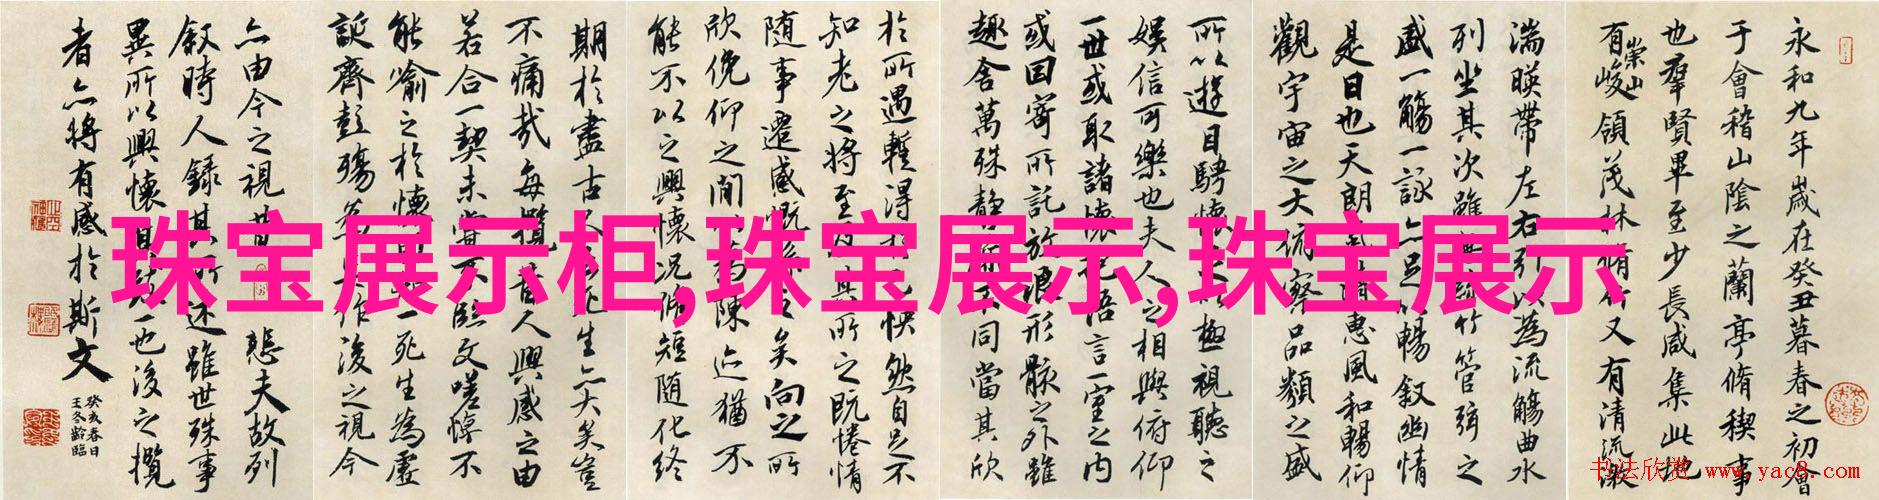 永和九年歲在癸丑暮春之初會
于會稽山陰之蘭亭脩稧事
也羣賢畢至少長咸集此地
有崇山峻領茂林脩竹又有清流激
湍暎帶左右引以為流觴曲水
列坐其次雖無絲竹管弦之
盛一觴一詠亦足以暢敘幽情
是日也天朗氣清惠風和暢仰
觀宇宙之大俯察品類之盛
所以遊目騁懷足以極視聽之
娛信可樂也夫人之相與俯仰
一世或取諸懷抱悟言一室之內
或因寄所託放浪形骸之外雖
趣舍萬殊靜躁不同當其欣
於所遇暫得於己快然自足不
知老之將至及其所之既惓情
隨事遷感慨係之矣向之所
欣俛仰之間以為陳迹猶不
能不以之興懷況脩短隨化終
期於盡古人云死生亦大矣豈
不痛哉每覽昔人興感之由
若合一契未嘗不臨文嗟悼不
能喻之於懷固知一死生為虛
誕齊彭殤為妄作後之視今
亦由今之視昔悲夫故列
敘時人錄其所述雖世殊事
異所以興懷其致一也後之攬
者亦將有感於斯文
癸亥春日
王冬齡臨
珠宝展示柜,珠宝展示,珠宝展示
书法欣赏 www.yac8.com